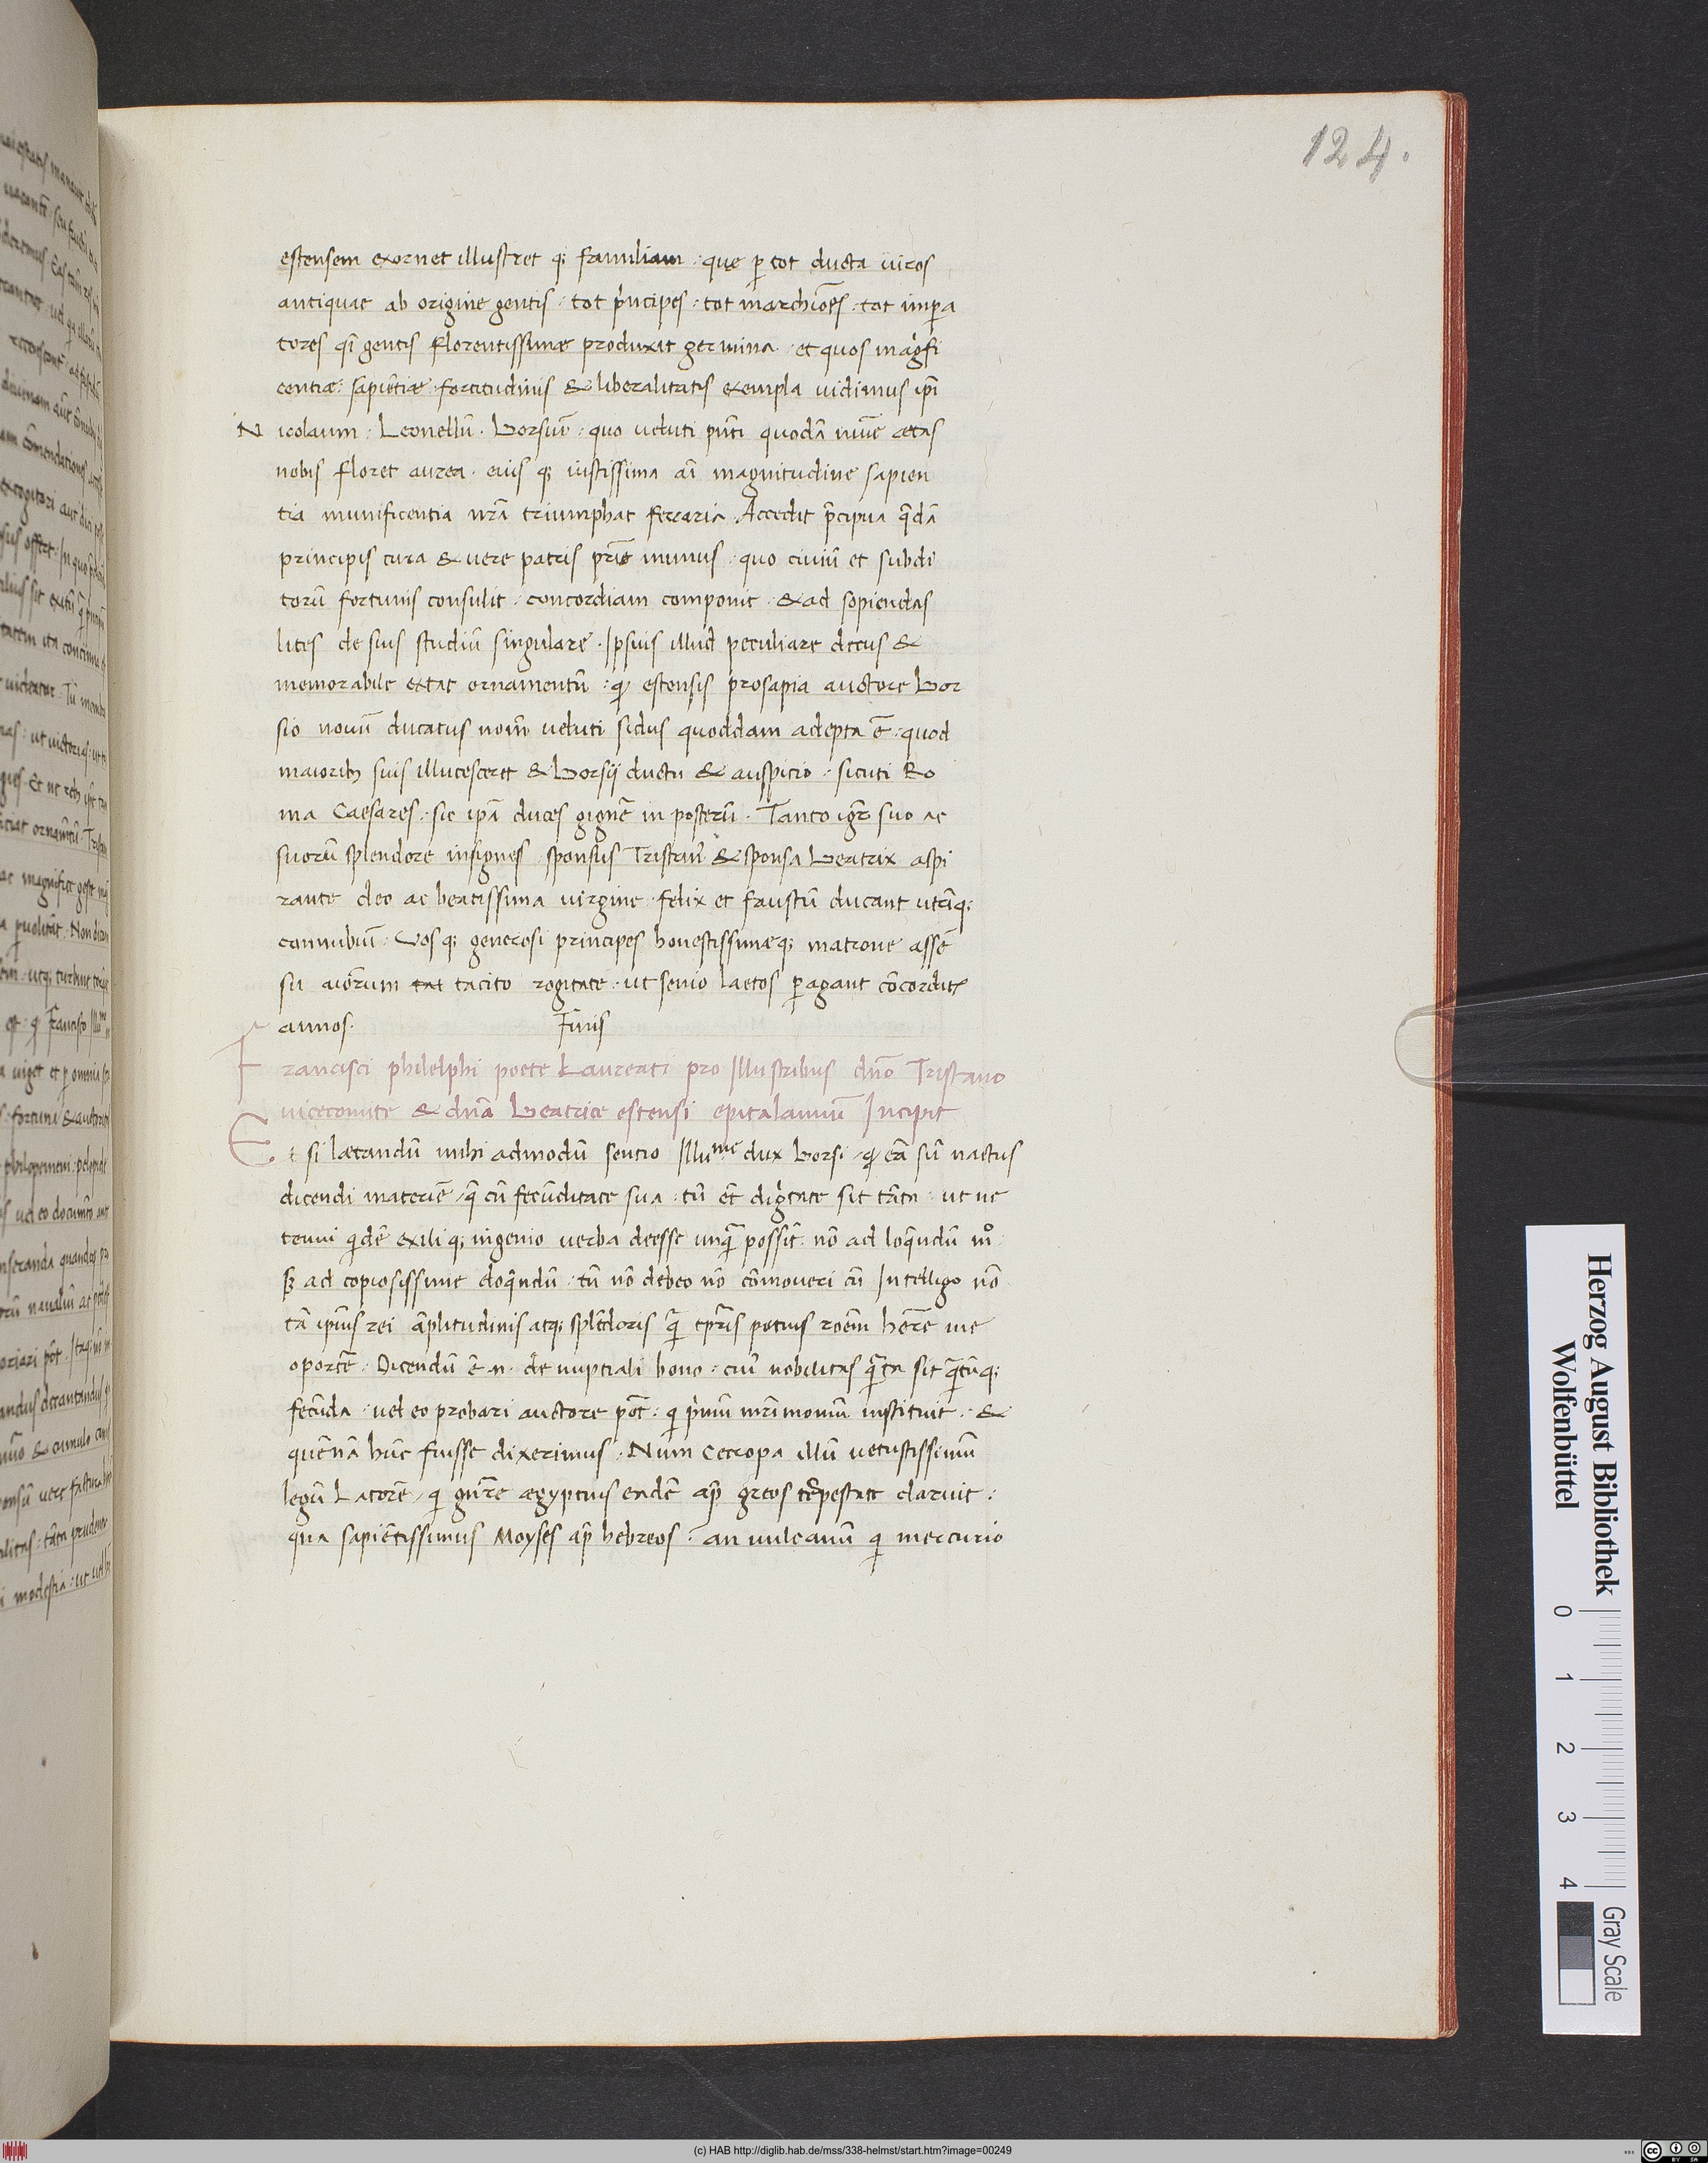 124.
estensem exornet illustret q; familiam : que ꝑ tot ducta uiros
antiquae ab origine gentis : tot pͥncipes : tot marchiōes : tot impa
tores qͥ gentis florentissimae produxit germina : et quos magͥfi
centiae : sapiētiae : fortitudinis & liberalitatis exempla uidimus ip̄i
Nicolaum : Leonellū . Borsiūꝫ : quo ueluti pn̄ti quodā nūe aetas
nobis floret aurea . eius q; iustissima aī magnitudine sapien
tia munificentia nr̄a triumphat ferraria . Accedit p̄cipua q̄dā
principis cura & uere patris pr̄ie munus : quo ciuiū et subdi
torū fortunis consulit : concordiam componit : & ad sopiendas
lites de suis studiū singulare . Ipsius illud peculiare decus &
memorabile extat ornamentū : ꝙ estensis prosapia auctore Bor
sio nouū ducatus nom̄ ueluti sidus quoddam adepta ē : quod
maioribꝫ suis illucesceret & Borsij ductu & auspicio : sicuti Ro
ma Caesares . sic ip̄a duces gignē in posterū . Tanto igr̄ suo ac
suorū splendore insignes sponsus Tristan9 & sponsa Beatrix aspi
rante deo ac beatissima uirgine felix et faustū ducant utrīq;
connubiū : Vos q; generosi principes honestissimaeq; matrone assē
su aiōrum tat tacito rogitate : ut senio laetos ꝑagant cōcordit̄
annos. Finis
Francisci philelphi poete Laureati pro Illustribus dn̄o Tristano
uicecomite & dn̄a Beatrice estensi epitalamiū Incipit
Et si laetandū mihi admodū sentio Illuᵐᵉ dux Borsi / ꝙ eā sū nactus
dicendi materiē / q̄ cū fecūditate sua : tū ēt digͥtate sit tāta : ut ne
tenui qͥdē exili q; ingenio uerba deesse unq̄ possīt : nō ad loq̄ndū mͦ
sꝫ ad copiosissime eloq̄ndū : tū nō debeo nō cōmoueri cū Intelligo nō
tā ipius rei āplitudinis atq; splēdoris q̄ tp̄ris potius roēm hēre me
oportē : Dicendū ē .n. de nuptiali bono : cui9 nobilitas q̄ta sit q̄tūq;
fecūda : uel eo probari auctore pōt : qͥ pͥmū mr̄imoniū instituit . &
quēnā hūc fuisse dixerimus . Num Cecropa illū uetustissimū
legū Latorē / qͥ gn̄re aegyptius eadē apd̄ grecos tēpestate claruit :
qua sapiētissimus Moyses apd̄ hebreos . an uulcanū qͥ mercurio
Herzog August Bibliothek
Wolfenbüttel
0 1 2 3 4
Gray Scale
(c) HAB http://diglib.hab.de/mss/338-helmst/start.htm?image=00249